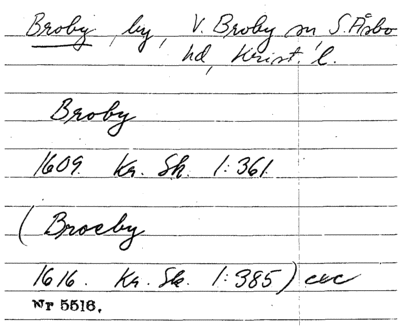 Broby, by, V. Broby sn, S. Åsbo
hd, Krist. l.
Broby
1609. Kr. Sk. 1:361.
(Broeby
1616. Kr. Sk. 1:385) etc
Nr 5516.